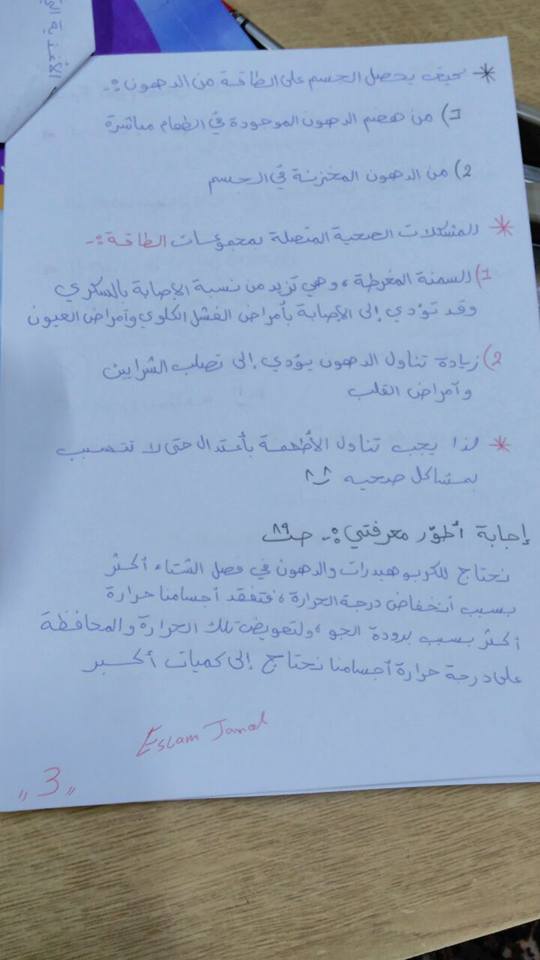 * كيف يحصل الجسم على الطاقة من الدهون :-
1) من هضم الدهون الموجودة في الطعام مباشرة
2) من الدهون المختزنة في الجسم
* المشكلات الصحية المتصلة بمجموعات الطاقة :-
1) السمنة المفرطة ، وهي تزيد من نسبة الإصابة بالسكري
وقد تؤدي إلى الإصابة بأمراض الفشل الكلوي وأمراض العيون
2) زيادة تناول الدهون يؤدي إلى تصلب الشرايين
وأمراض القلب
* لذا يجب تناول الأطعمة بأعتدال حتى لا تتسبب
بمشاكل صحيه ^^
إجابة أطوّر معرفتي :- ص٨٩
نحتاج للكربوهيدرات والدهون في فصل الشتاء أكثر
بسبب أنخفاض درجة الحرارة ، فتفقد أجسامنا حرارة
أكثر بسبب برودة الجو ، ولتعويض تلك الحرارة والمحافظة
على درجة حرارة أجسامنا نحتاج إلى كميات أكبر
Eslam
"3"
الأغذية